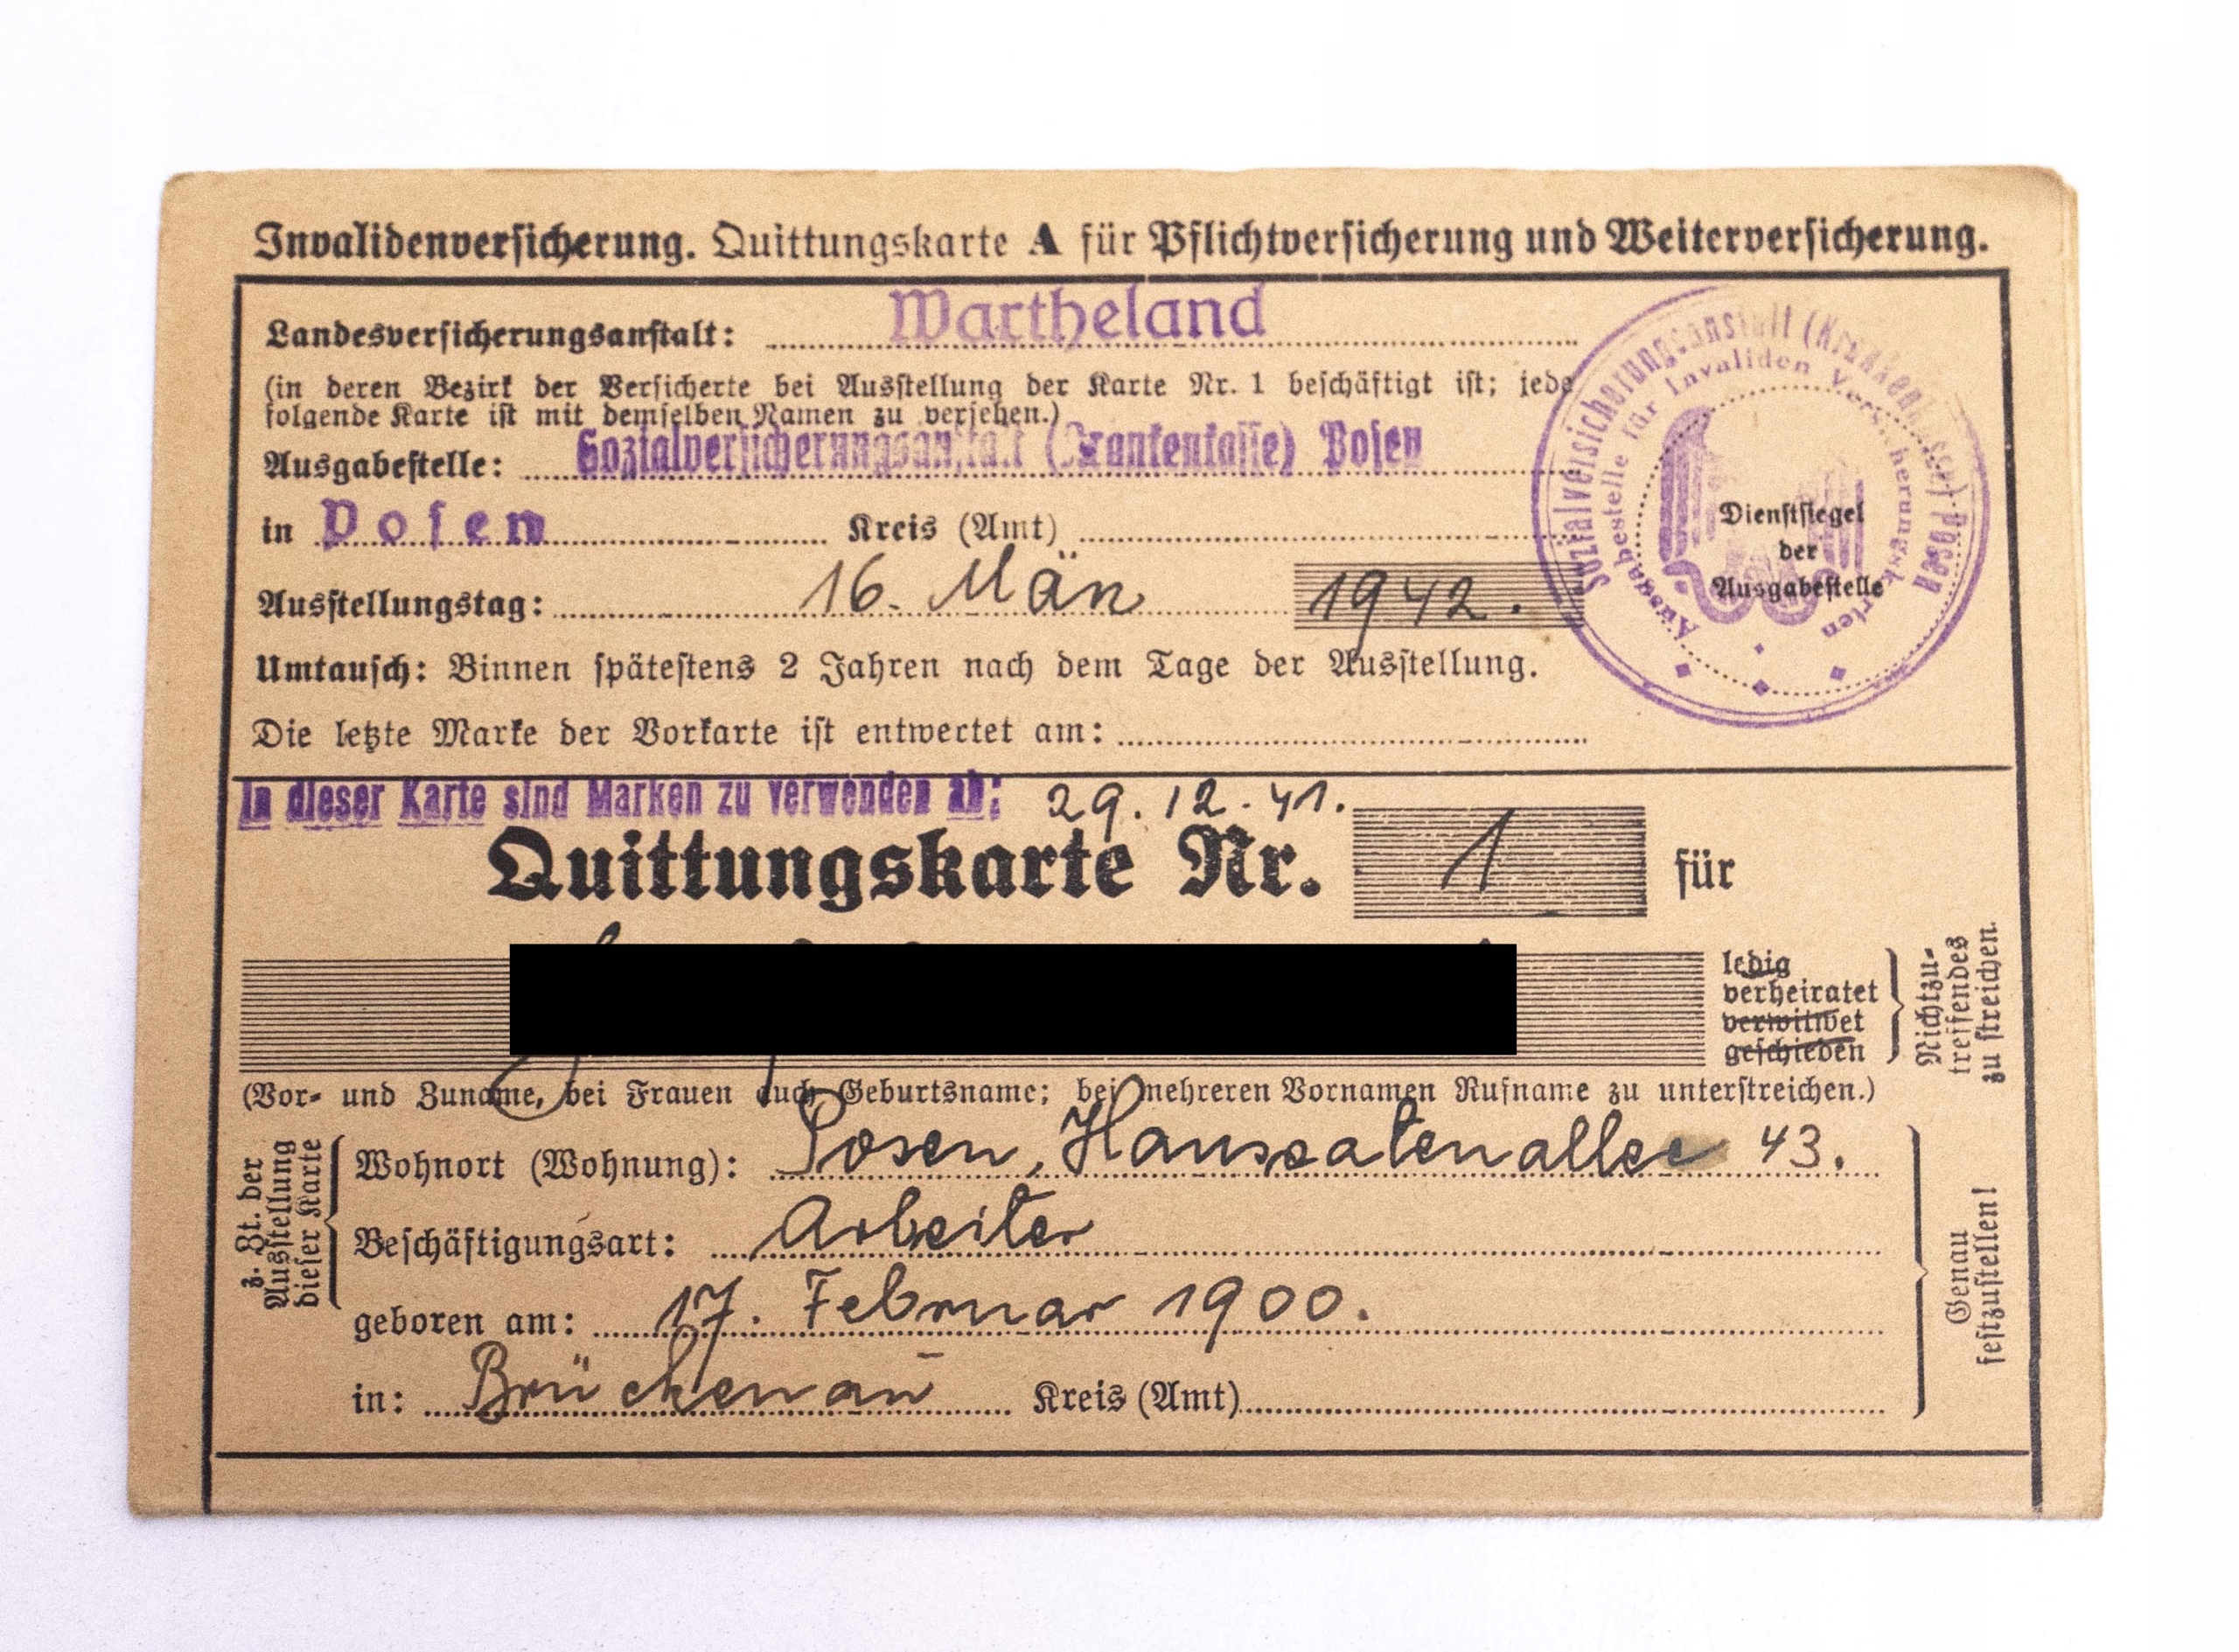 Invalidenversicherung. Quittungskarte A für Pflichtversicherung und Weiterversicherung.
Landesversicherungsanstalt: Wartheland
(in deren Bezirk der Versicherte bei Ausstellung der Karte Nr. 1 beschäftigt ist; jede
folgende Karte ist mit demselben Namen zu versehen.)
Ausgabestelle: Sozialversicherungsanstalt (Krankenkasse) Posen
in Posen Kreis (Amt)
Ausstellungstag: 16. März 1942.
Umtausch: Binnen spätestens 2 Jahren nach dem Tage der Ausstellung.
Die letzte Marke der Vorkarte ist entwertet am:
Sozialversicherungsanstalt (Krankenkasse) Posen
Ausgabestelle für Invaliden Versicherungskarten
Dienstsiegel
der
Ausgabestelle
In dieser Karte sind Marken zu verwenden ab: 29.12.41.
Quittungskarte Nr. 1 für
ledig
verheiratet
verwitwet
geschieden
Nichtzu-
treffendes
zu streichen.
(Vor- und Zuname, bei Frauen auch Geburtsname; bei mehreren Vornamen Rufname zu unterstreichen.)
z. Zt. der
Ausstellung
dieser Karte
Wohnort (Wohnung): Posen, Hansaatenallee 43.
Beschäftigungsart: Arbeiter
geboren am: 17. Februar 1900.
in: Brückenau Kreis (Amt)
Genau
festzustellen!